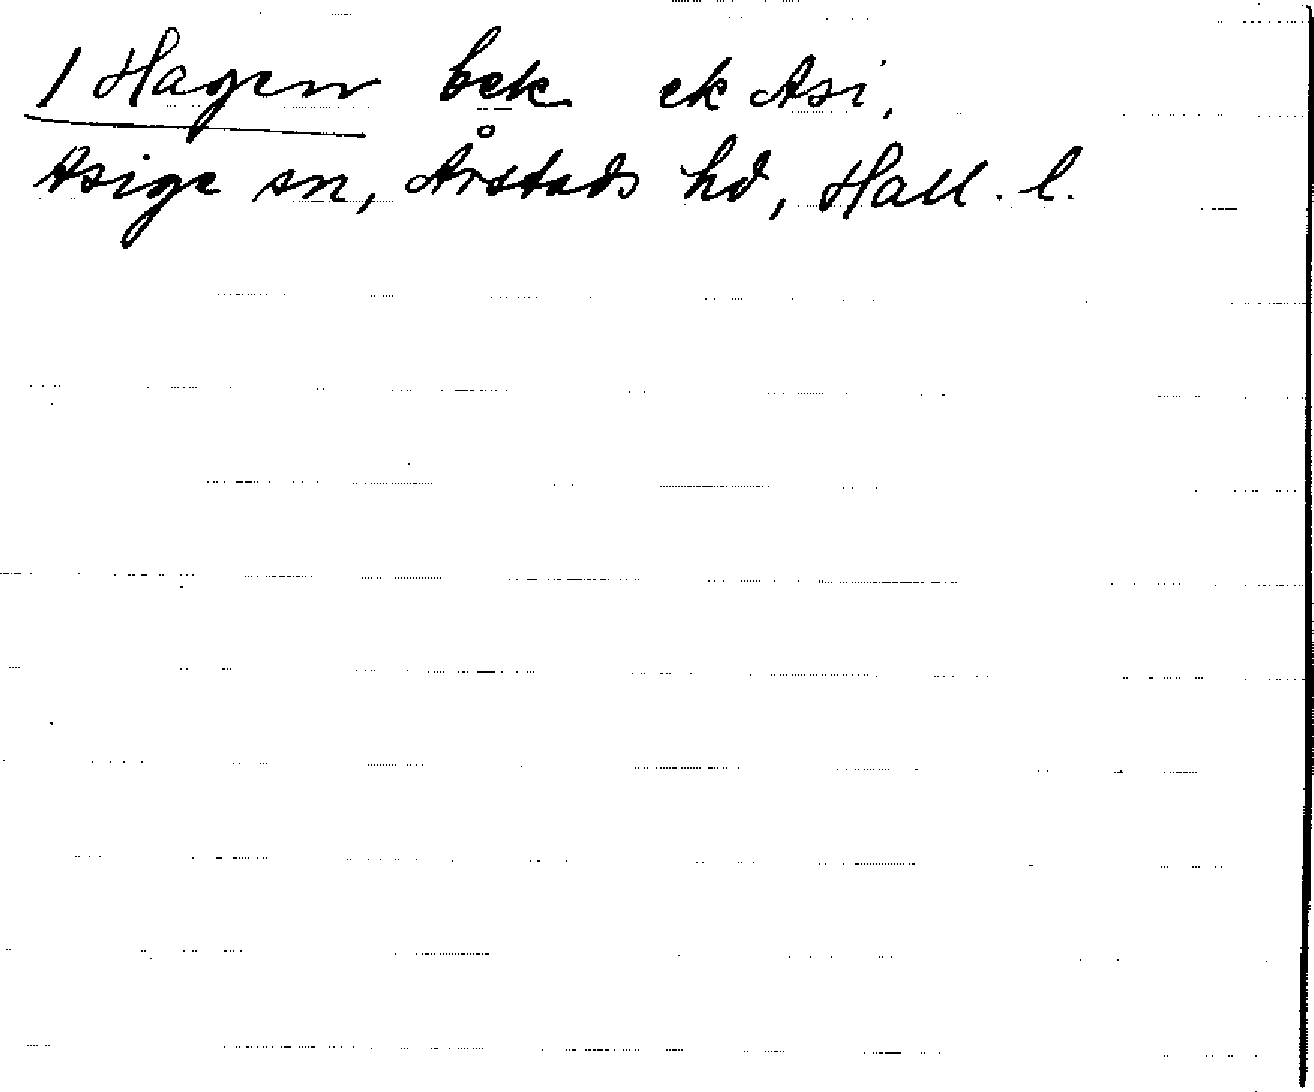 1 Hagen bek ek Asi,
Asige sn, Årstads hd, Hall. l.